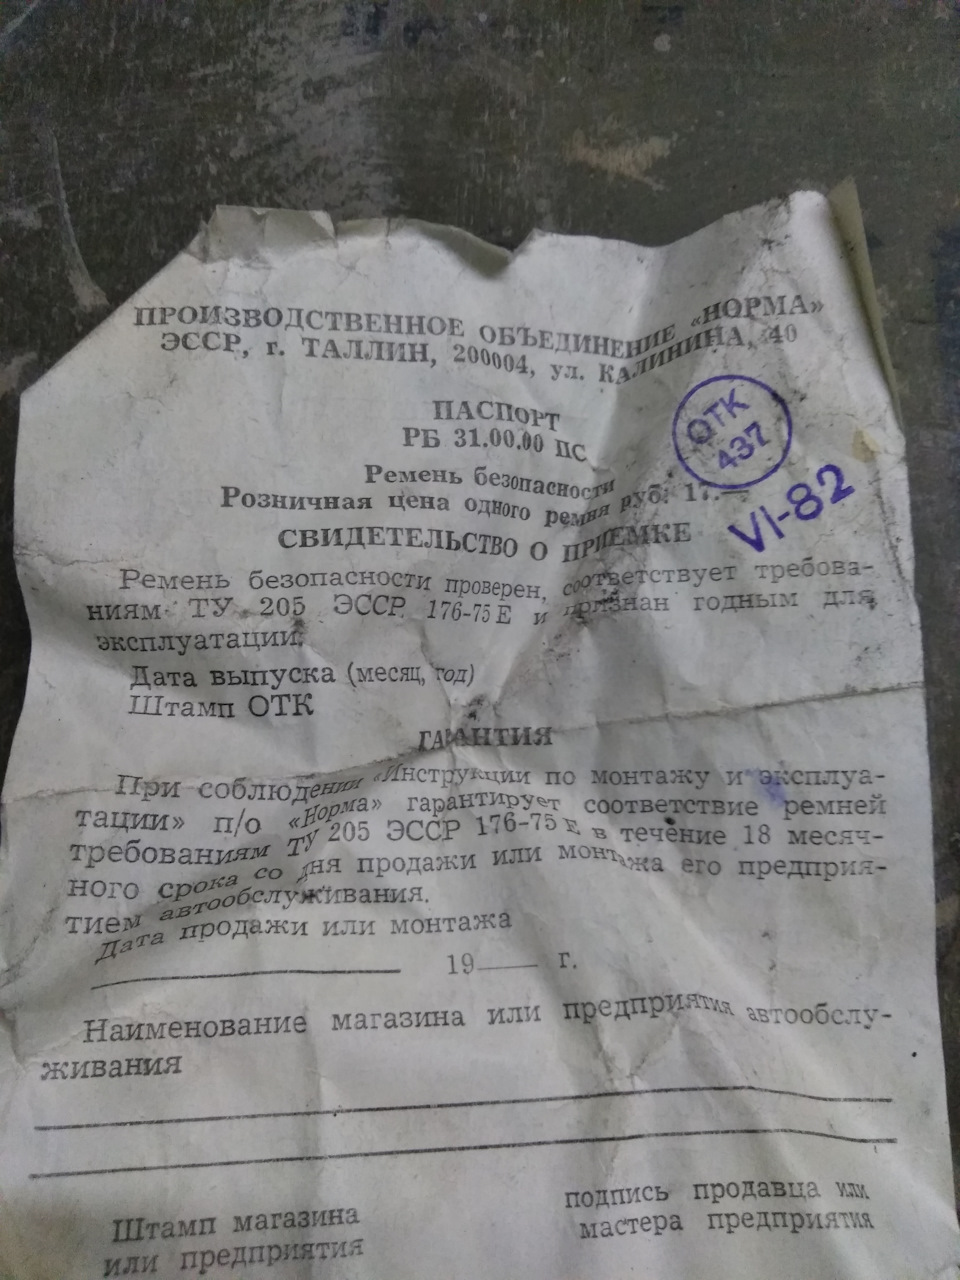 ПРОИЗВОДСТВЕННОЕ ОБЪЕДИНЕНИЕ «НОРМА»
ЭССР, г. ТАЛЛИН, 200004, ул. КАЛИНИНА, 40
ПАСПОРТ
РБ 31.00.00 ПС
ОТК
437
VI-82
Ремень безопасности
Розничная цена одного ремня руб: 17.—
СВИДЕТЕЛЬСТВО О ПРИЕМКЕ
Ремень безопасности проверен, соответствует требова-
ниям ТУ 205 ЭССР 176-75 Е и признан годным для
эксплуатации.
Дата выпуска (месяц, год)
Штамп ОТК
ГАРАНТИЯ
При соблюдении «Инструкции по монтажу и эксплуа-
тации» п/о «Норма» гарантирует соответствие ремней
требованиям ТУ 205 ЭССР 176-75 Е в течение 18 месяч-
ного срока со дня продажи или монтажа его предприя-
тием автообслуживания.
Дата продажи или монтажа
19 г.
Наименование магазина или предприятия автообслу-
живания
Штамп магазина
или предприятия
подпись продавца или
мастера предприятия